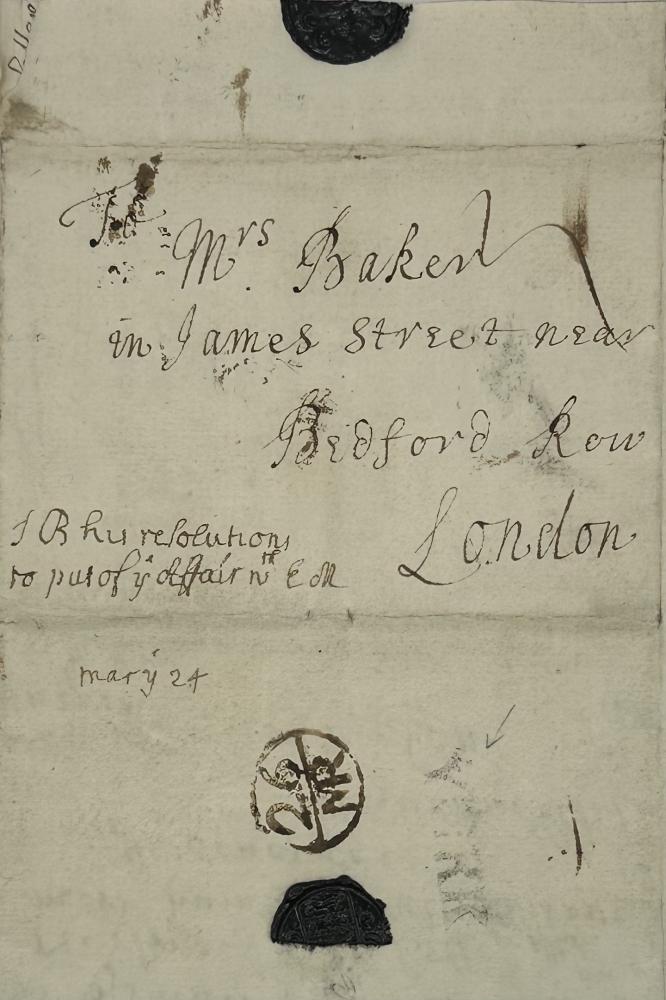 To
Mrs Baker
in James Street near
Bedford Row
London
J B his resolutions
to put of ye affair wth E M
mary 24
28
MR